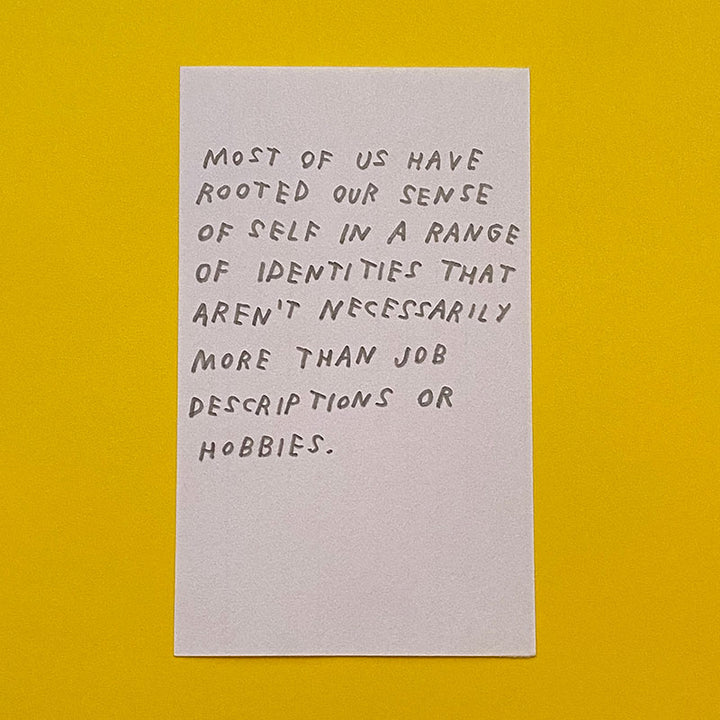 MOST OF US HAVE
ROOTED OUR SENSE
OF SELF IN A RANGE
OF IDENTITIES THAT
AREN'T NECESSARILY
MORE THAN JOB
DESCRIPTIONS OR
HOBBIES.